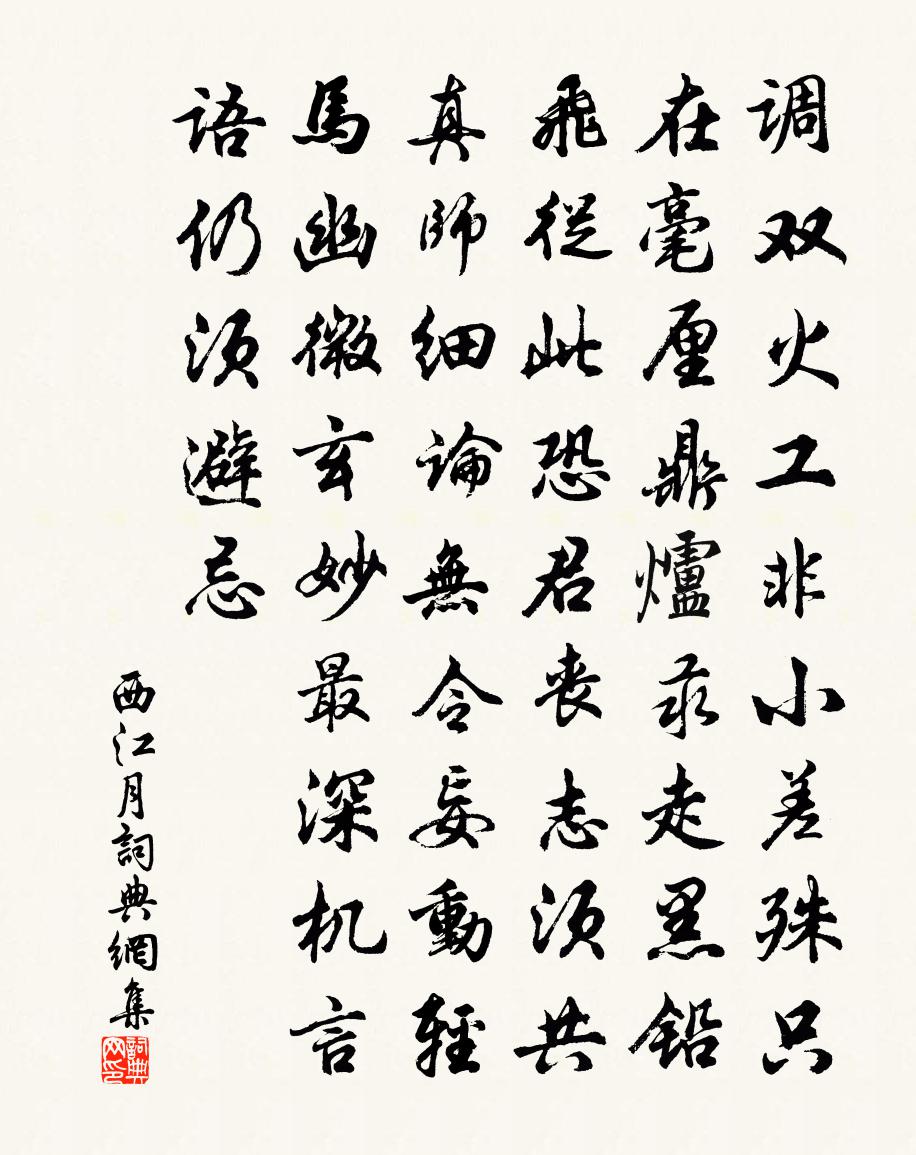 调双火工非小差殊只
在毫厘鼎爐汞走黑铅
飛從此恐君丧志須共
真師细論無令妄動輕
馬幽微玄妙最深机言
语仍須避忌
西江月詞典網集
詞典网印